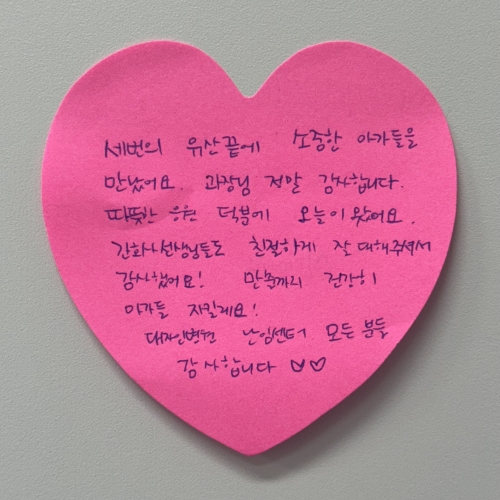 세번의 유산끝에 소중한 아가들을
만났어요. 과장님 정말 감사합니다.
따뜻한 응원 덕분에 오늘이 왔어요.
간호사선생님들도 친절하게 잘 대해주셔서
감사했어요! 만출까지 건강히
아가들 지킬게요!
대자인병원 난임센터 모든 분들
감사합니다 ♡♡